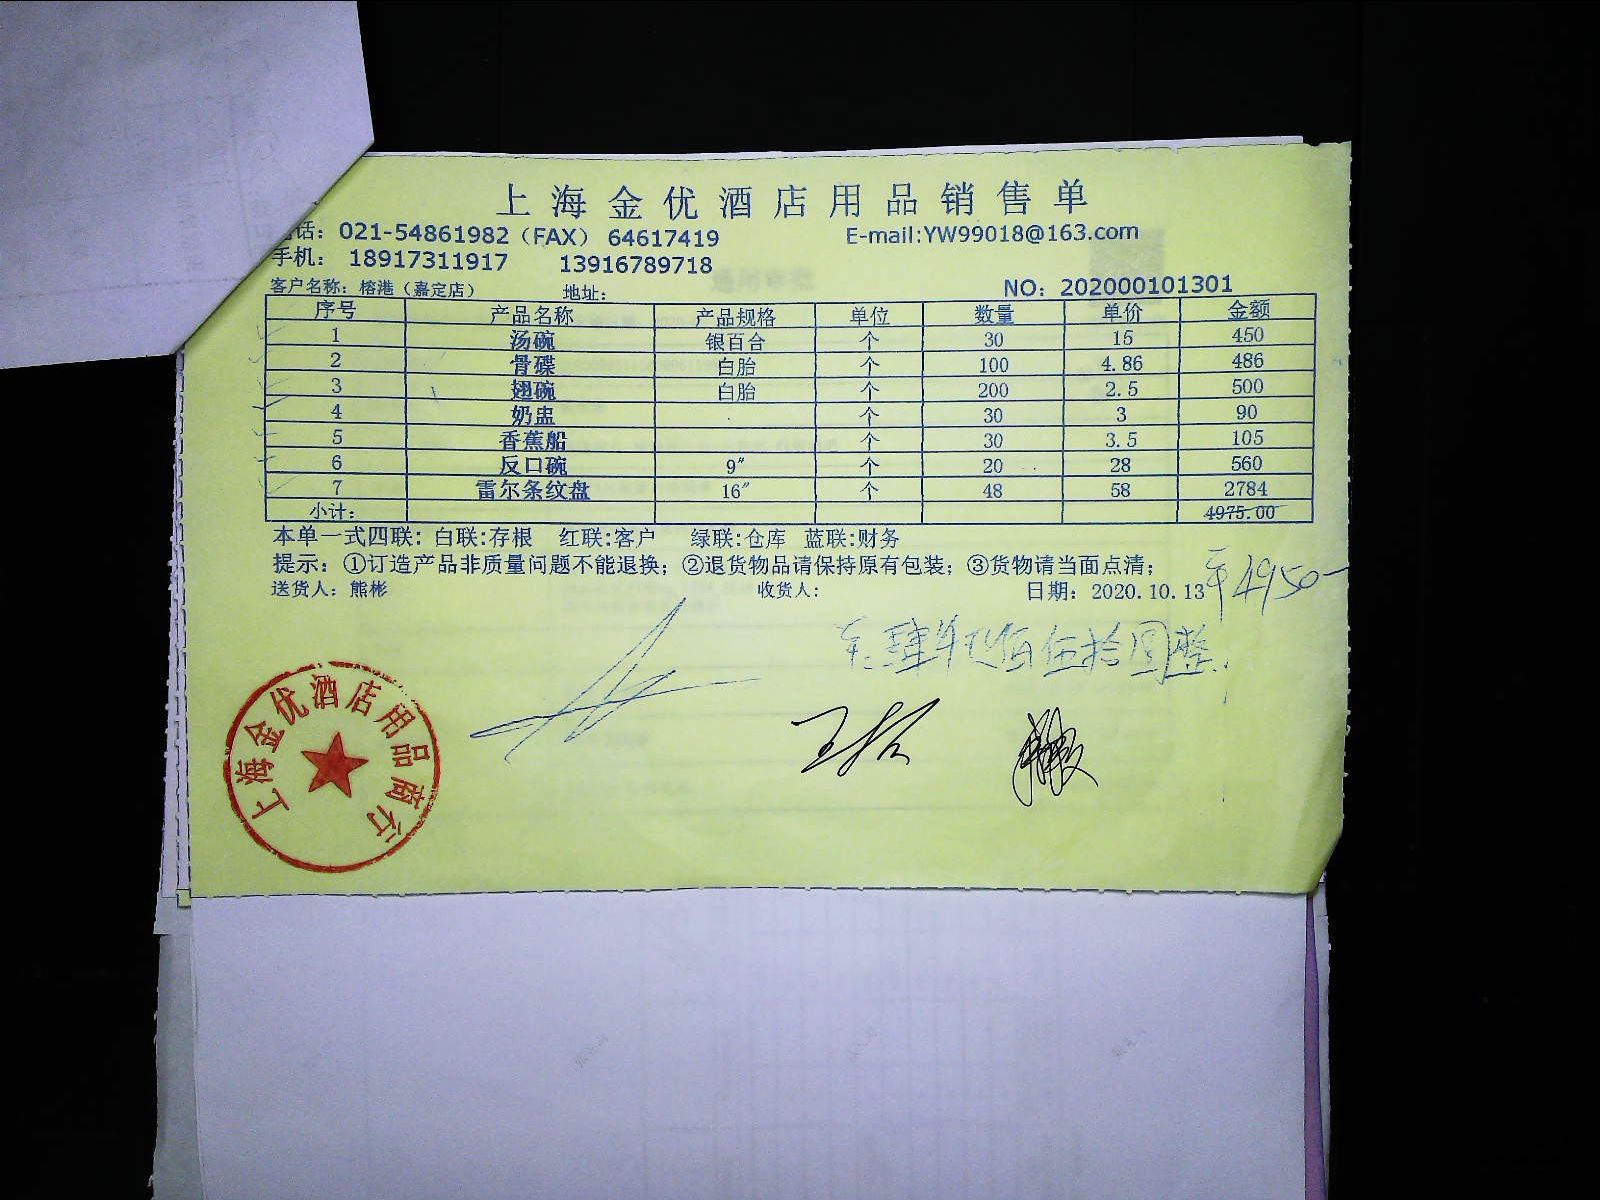 上海金优酒店用品销售单
话: 021-54861982 (FAX) 64617419 E-mail:YW99018@163.com
手机: 18917311917 13916789718
客户名称: 榕港(嘉定店) 地址: NO: 202000101301
序号 产品名称 产品规格 单位 数量 单价 金额
1 汤碗 银百合 个 30 15 450
2 骨碟 白胎 个 100 4.86 486
3 翅碗 白胎 个 200 2.5 500
4 奶盅 个 30 3 90
5 香蕉船 个 30 3.5 105
6 反口碗 9″ 个 20 28 560
7 雷尔条纹盘 16″ 个 48 58 2784
小计: 4975.00
本单一式四联: 白联:存根 红联:客户 绿联:仓库 蓝联:财务
提示: ①订造产品非质量问题不能退换; ②退货物品请保持原有包装; ③货物请当面点清;
送货人: 熊彬 收货人: 日期: 2020.10.13 4950
肆仟玖佰伍拾圆整
上海金优酒店用品商行